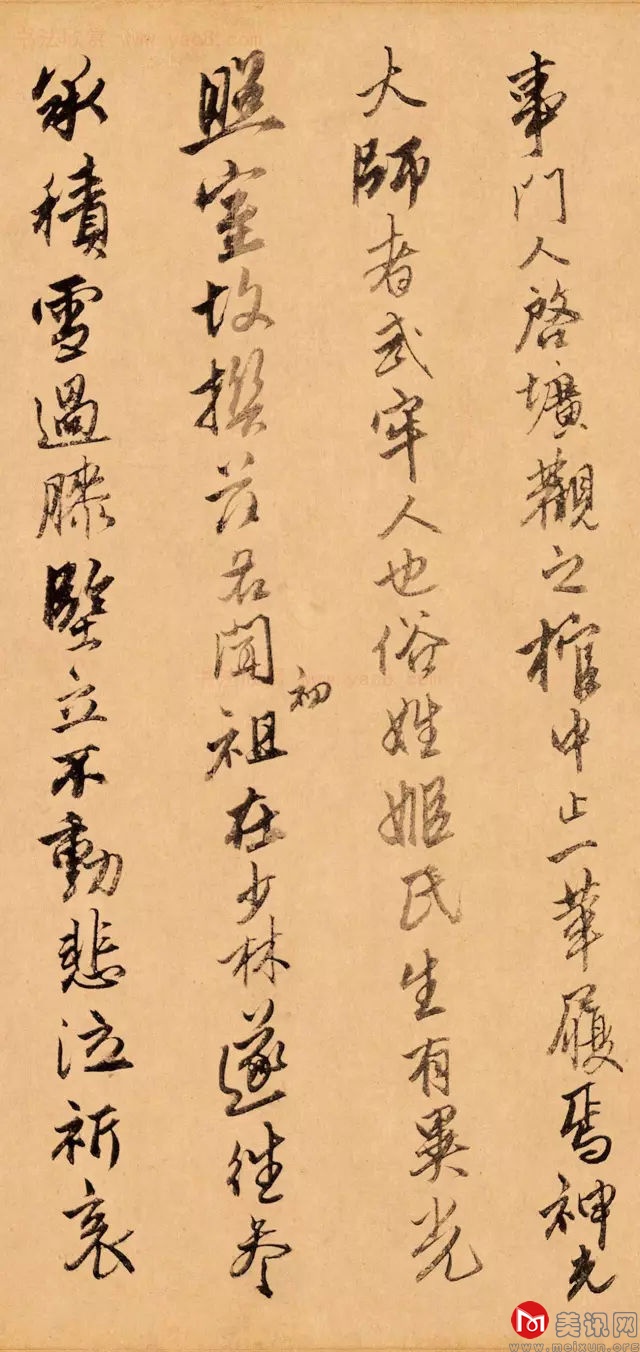 事門人啓壙觀之棺中止一革履焉神光
大師者武牢人也俗姓姬氏生有異光
照室故撰茲名聞初祖在少林遂往參
承積雪過膝堅立不動悲泣祈哀
美讯网
www.meixun.org